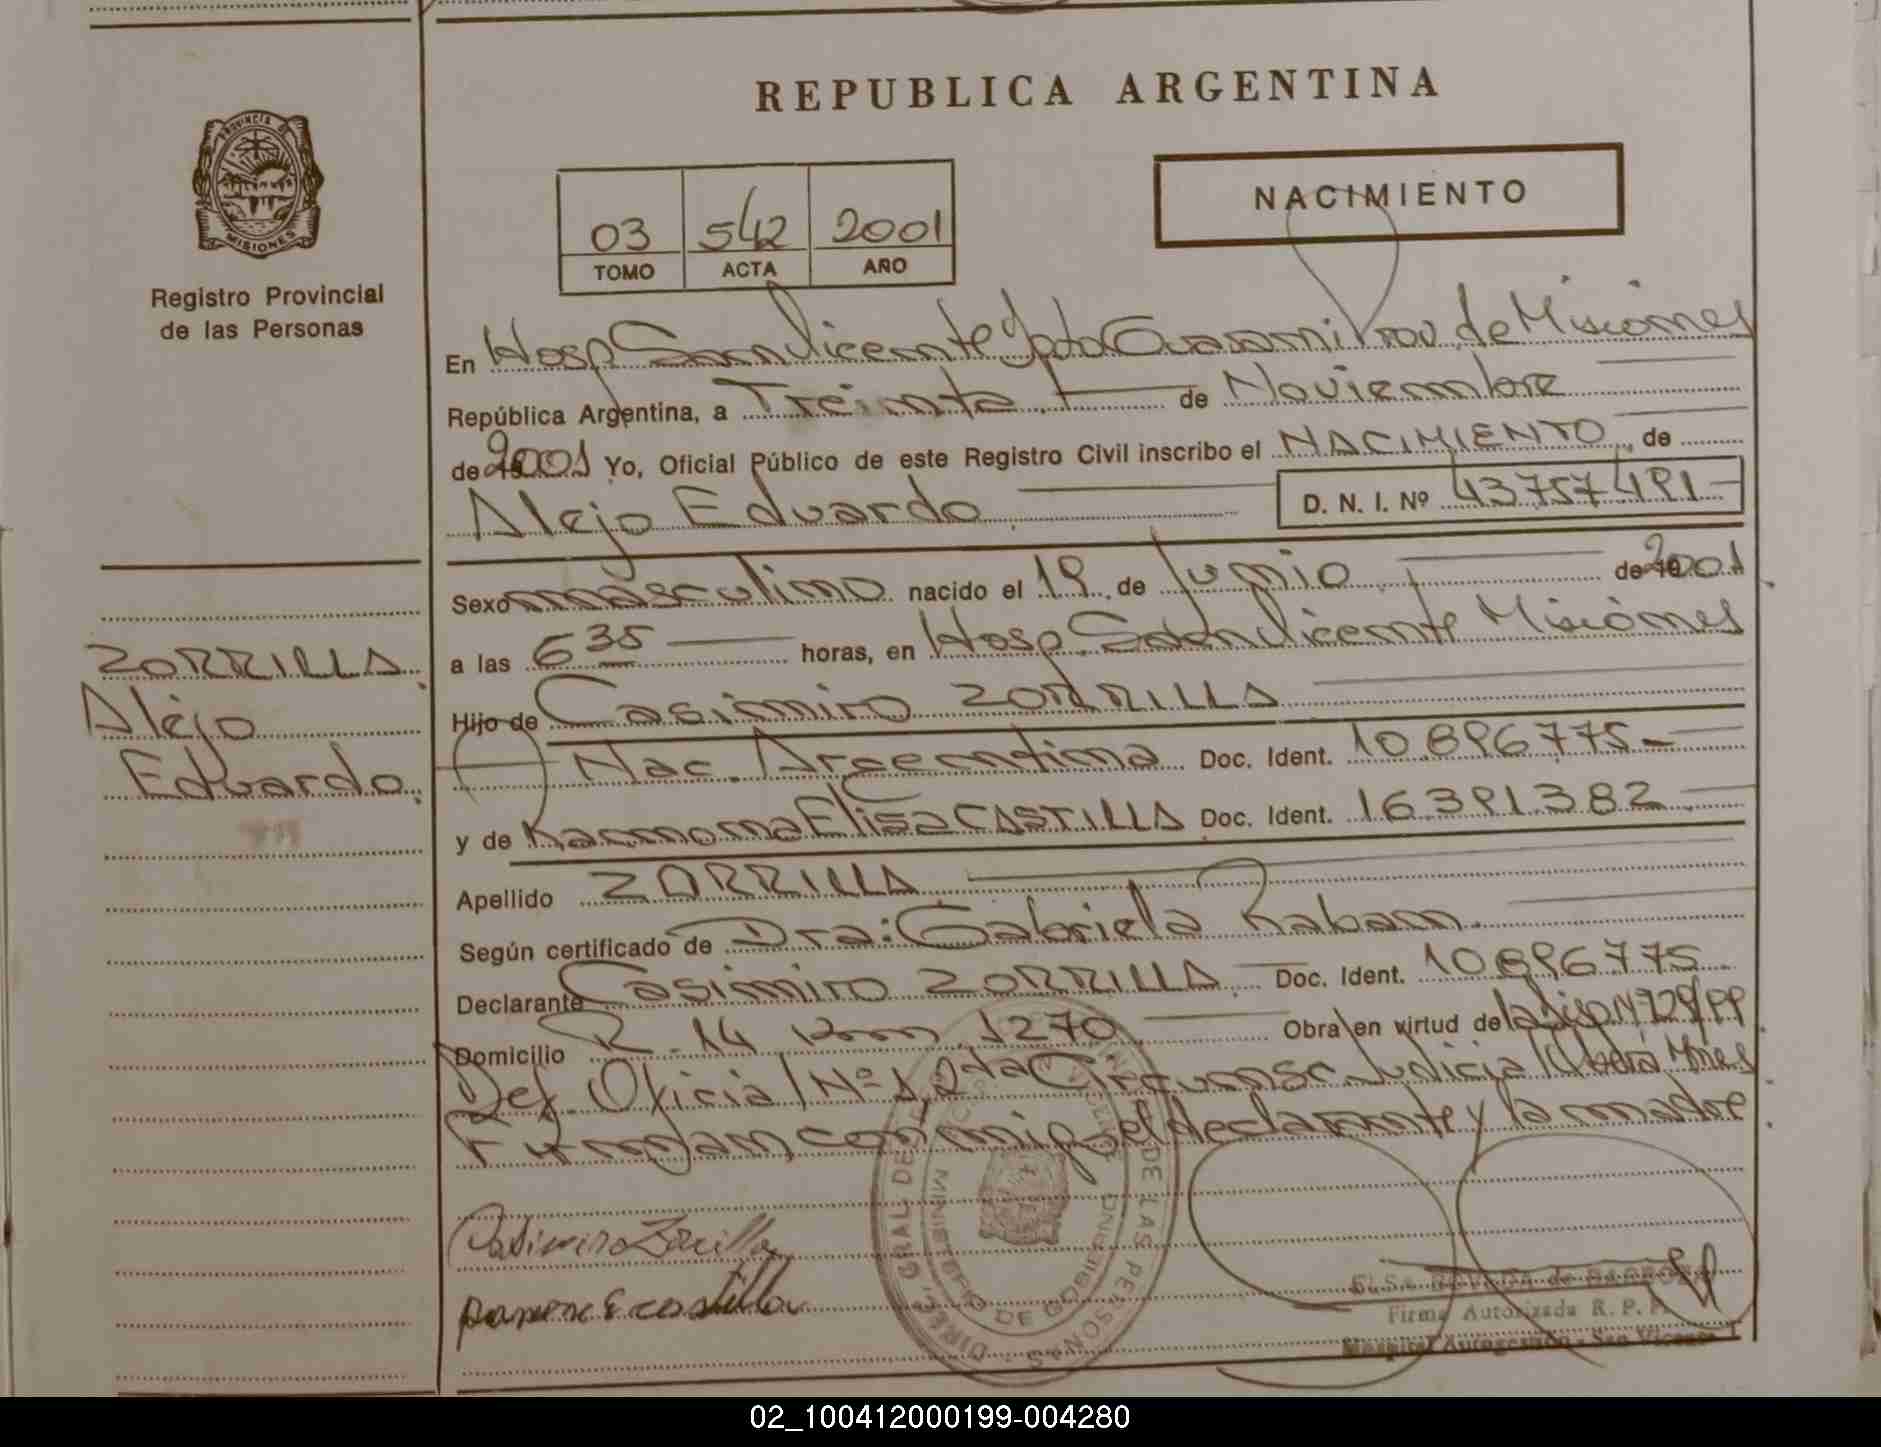 REPUBLICA ARGENTINA
PROVINCIA DE
MISIONES
Registro Provincial
de las Personas
NACIMIENTO
03 542 2001
TOMO ACTA AÑO
En Hosp San Vicente Dpto Guarani Prov. de Misiones
República Argentina, a Treinta de Noviembre
de 2001 Yo, Oficial Público de este Registro Civil inscribo el NACIMIENTO, de
Alejo Eduardo D. N. I. Nº 43757491
Sexo masculino nacido el 19 de Junio de 2001
a las 6 35 horas, en Hosp. San Vicente Misiones
Hijo de Casimiro ZORRILLA
Nac. Argentina Doc. Ident. 10.896775
y de Ramona Elisa CASTILLA Doc. Ident. 16.391.382
Apellido ZORRILLA
Según certificado de Dra: Gabriela Raban.
Declarante Casimiro ZORRILLA Doc. Ident. 10896775
Domicilio R. 14 Km 1270 Obra en virtud de la Disp. Nº
Def. Oficial Nº 1, 2da Circunsc. Judicial Oberá Mnes
Firman conmigo el declarante y la madre
ZORRILLA
Alejo
Eduardo.
Casimiro Zorrilla
Ramona E castilla
DE LAS PERSONAS
MINISTERIO DE GOBIERNO
Firma Autorizada R. P. P.
Hospital Autogestión - San Vicente
02_100412000199-004280